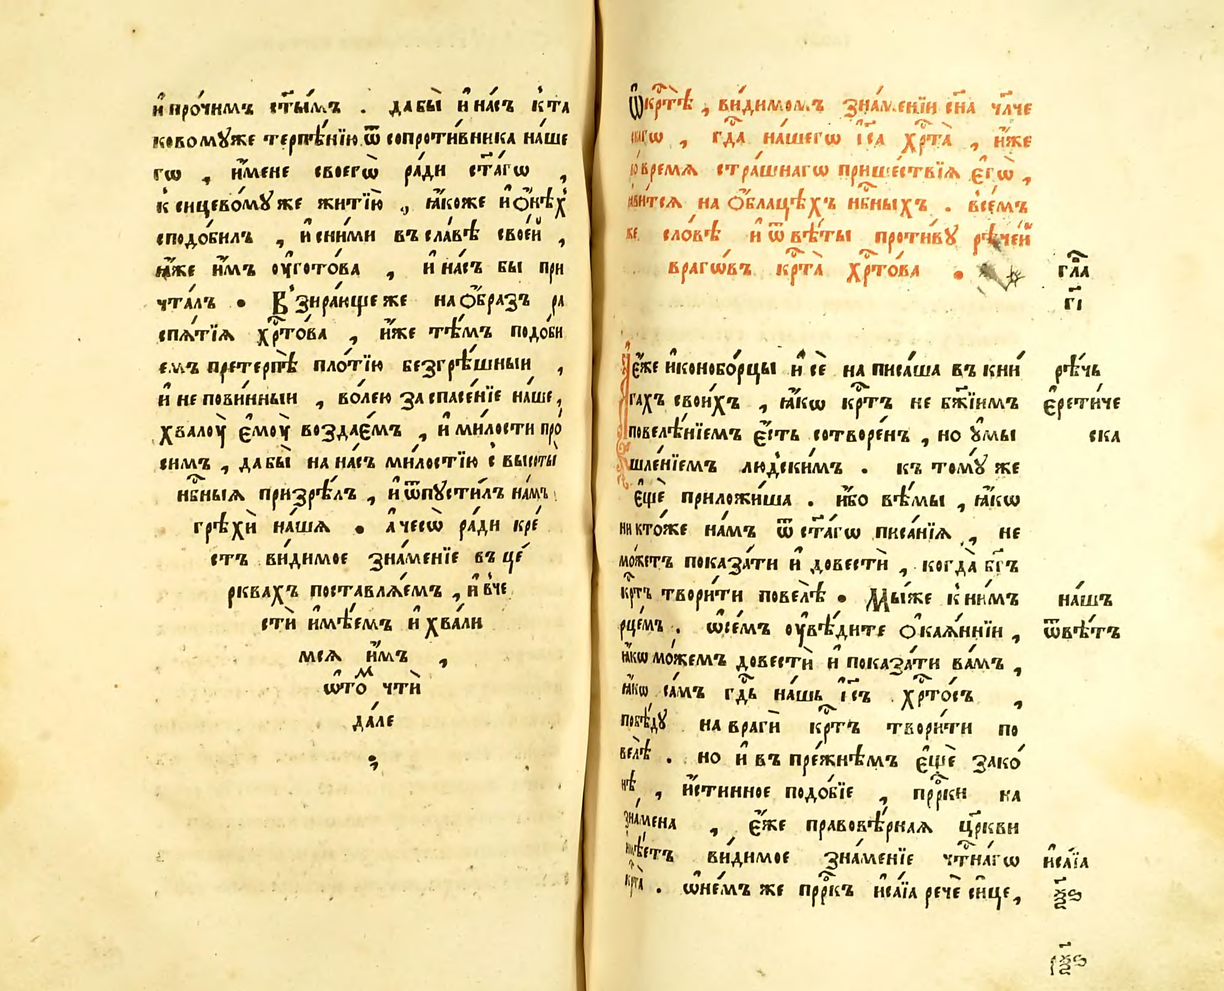 и҆ про́чимъ ст҃ы́мъ . дабы̀ и҆ на́съ к̾та
ковомꙋ́же терпѣ́нїю ѿ сопроти́вника на́ше
гѡ , и҆́мене своегѡ̀ ра́ди ст҃а́гѡ ,
к̾ сицево́мꙋ же житїю̀ , ꙗ҆́коже и҆ ѻ҆́нѣхъ
сподо́билъ , и҆ сни́ми въ сла́вѣ свое́й ,
ꙗ҆́же и҆̀мъ оу҆гото́ва , и҆ на́съ бы при
чта́лъ • Взира́юще же на ѻ҆́бразъ ра
спѧ́тїѧ хрⷭ҇то́ва , и҆́же тѣ́мъ подо́бї
емъ претерпѣ̀ пло́тїю безгрѣ́шныи ,
и҆ не пови́нныи , во́лею за спасе́нїе на́ше ,
хвалоу̀ є҆моу̀ воздае́мъ , и҆ ми́лости про́
симъ , дабы̀ на на́съ ми́лостїю с̾ высоты̀
нб҃ныѧ призрѣ́лъ , и҆ ѿпꙋсти́лъ на́мъ
грѣхѝ на́шѧ • а҆ чесѡ̀ ра́ди кре́
стъ ви́димое зна́менїе въ це́
рквахъ поставлѧ́емъ , и҆ в̾че
сти и҆мѣ́емъ и҆ хва́ли
мсѧ и҆́мъ ,
ѡ҆ то́м чтѝ
да́ле
⁏
Ѡ҆ крⷭ҇тѣ̀ , ви́димомъ зна́менїи сн҃а чл҃че
скагѡ , гдⷭ҇а на́шегѡ і҆с҃а хрⷭ҇та̀ , и҆́же
во вре́мѧ стра́шнагѡ прише́ствїѧ є҆гѡ̀ ,
ꙗ҆ви́тсѧ на ѻ҆́блацѣхъ нбⷭ҇ныхъ . всѐмъ
же сло́вѣ и҆ ѿвѣ́ты проти́вꙋ рѣче́й
враго́въ крⷭ҇та̀ хрⷭ҇то́ва •
гл҃а
г҃і
Є҆́же и҆конобо́рцы и҆ сѐ написа́ша въ кни́
гахъ свои́хъ , ꙗ҆́кѡ крⷭ҇тъ не бж҃їимъ
повелѣ́нїемъ є҆́сть сотворе́нъ , но ᲂу҆мы
шле́нїемъ людски́мъ . к томꙋ́ же
є҆щѐ приложи́ша . и҆́бо вѣ́мы , ꙗ҆́кѡ
никто́же на́мъ ѿ ст҃а́гѡ писа́нїѧ , не
мо́жетъ показа́ти и҆ довестѝ , когда̀ бг҃ъ
крⷭ҇тъ твори́ти повелѣ̀ • Мы́же к̾ ни́мъ
рце́мъ . ѡ҆ се́мъ оу҆вѣ́дите ѻ҆кая́ннїи ,
ꙗ҆́кѡ мо́жемъ довестѝ и҆ показа́ти ва́мъ ,
ꙗ҆́кѡ са́мъ гдⷭ҇ь на́шь і҆с҃ъ хрⷭ҇то́съ ,
побѣ́дꙋ на врагѝ крⷭ҇тъ твори́ти по
велѣ̀ . но и҆ въ пре́жнѣмъ є҆щѐ зако́
нѣ , и҆́стинное подо́бїе , прⷪ҇рки на
зна́мена , є҆́же правовѣ́рнаѧ цр҃кви
и҆мѣ́етъ ви́димое зна́менїе чтⷭ҇на́гѡ
крⷭ҇та̀ . ѡ҆ не́мъ же прⷪ҇ркъ и҆са́їа речѐ си́це ,
рѣ́чь
є҆рети́че
ска
на́шъ
ѿвѣ́тъ
и҆са́їа